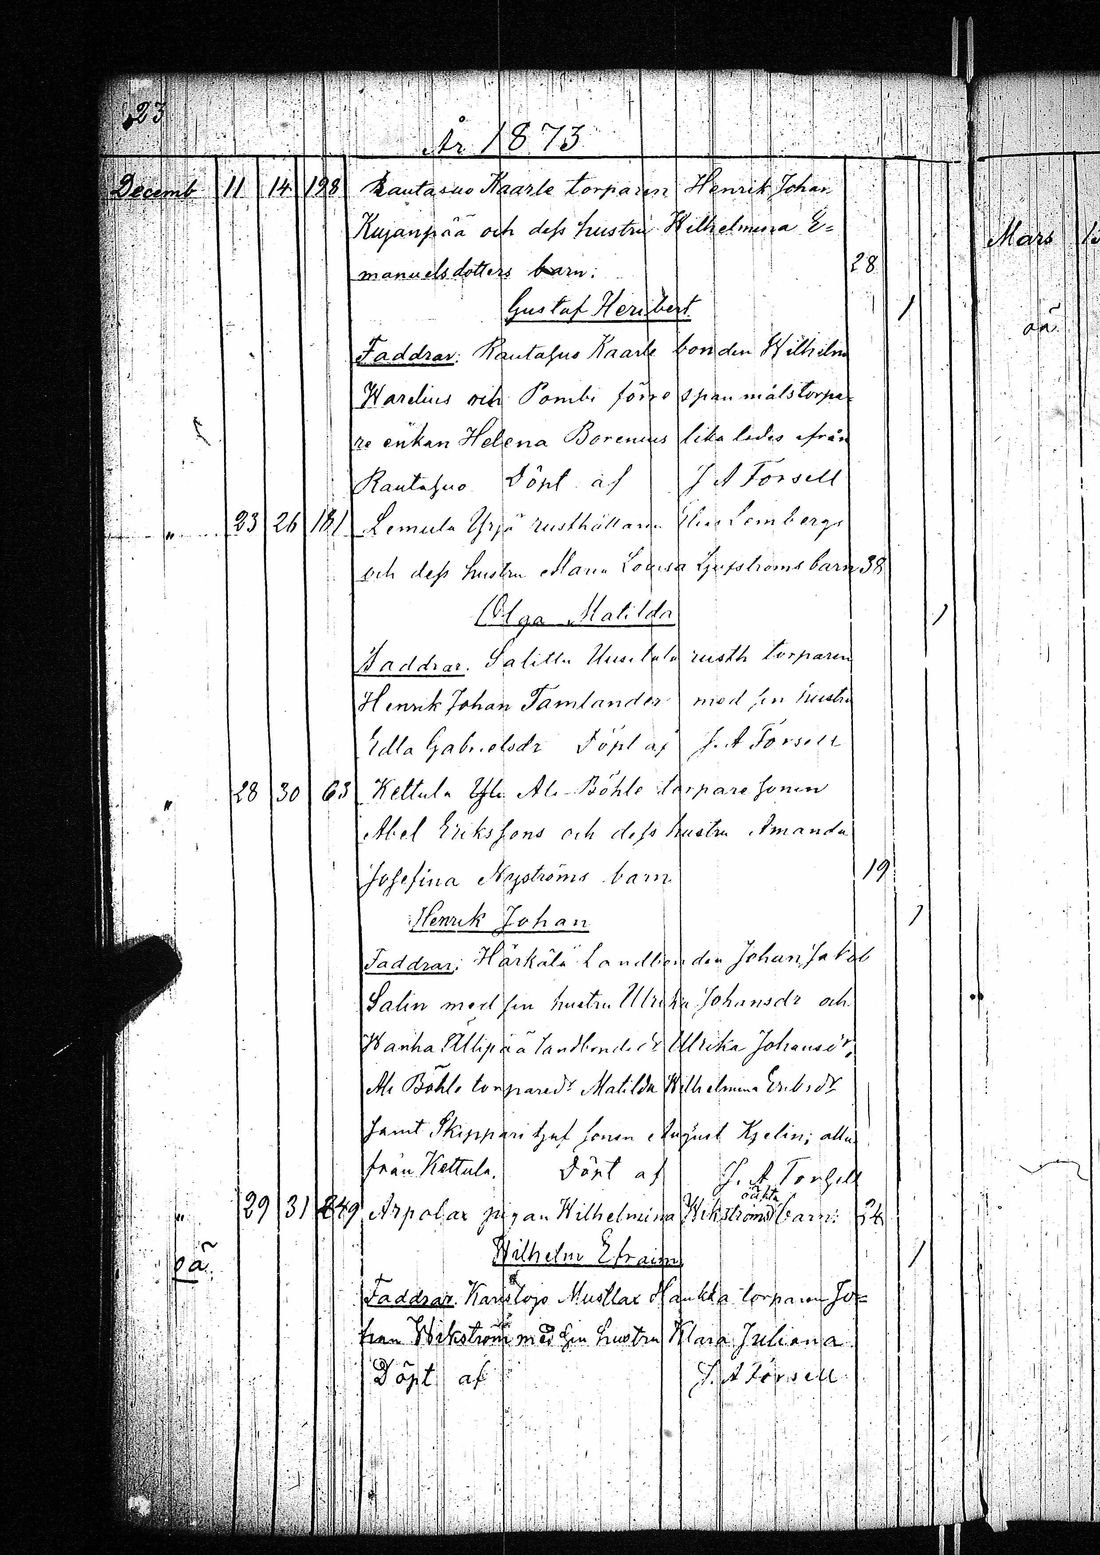 23
År 1873
Decemb 11 14 198 Rautasuo Kaarle torparen Henrik Johan
Kujanpää och dess hustru Wilhelmina E=
manuelsdotters barn: 28
Gustaf Heribert 1
Faddrar: Rautasuo Kaarle bonden Wilhelm
Warelius och Pombi förre spanmålstorpa=
re enkan Helena Borenius likaledes från
Rautasuo Döpt af J A Forsell
" 23 26 181 Lemula Yrjö rusthållaren Elias Lembergs
och dess hustru Maria Lovisa barn 38
Olga Matilda 1
Faddrar. Salittu Uusitalo rusth torparen
Henrik Johan Tamlander med sin hustru
Edla Gabrielsdr Döpt af J. A Forsell
" 28 30 63 Kettula Yli Ali-Böhle torpare sonen
Abel Erikssons och dess hustru Amanda
Josefina Nyströms barn 19
Henrik Johan 1
Faddrar: Härkälä Landbonden Johan Jakob
Salin med sin hustru Ulrika Johansdr och
Wanha Ällipää landbonde dr Ulrika Johansdr,
Ali Böhle torparedr Matilda Wilhelmina Eriksdr
samt Skippari sonen August Kjelin; alla
från Kettula. Döpt af J. A Forsell
" 29 31 249 Arpolax pigan Wilhelmina Wikströms oäkta barn: 24
oä Wilhelm Efraim 1
Faddrar. Karislojo Mustlax Haukka torparen Jo=
han Wikström med sin hustru Klara Juliana
Döpt af J. A Forsell
Mars
oä